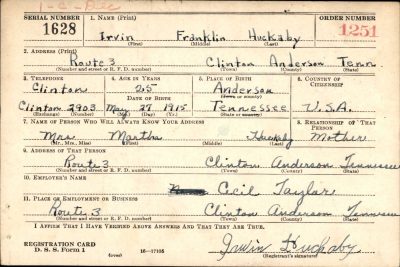 1-C-Dec
SERIAL NUMBER 1. NAME (Print) ORDER NUMBER
1628 Irvin Franklin Huckaby 1251
(First) (Middle) (Last)
2. ADDRESS (Print)
Route 3 Clinton Anderson Tenn
(Number and street or R. F. D. number) (Town) (County) (State)
3. TELEPHONE 4. AGE IN YEARS 5. PLACE OF BIRTH 6. COUNTRY OF CITIZENSHIP
Clinton 25 Anderson
DATE OF BIRTH (Town or county)
Clinton 2903 May 27 1915 Tennessee U.S.A.
(Exchange) (Number) (Mo.) (Day) (Yr.) (State or country)
7. NAME OF PERSON WHO WILL ALWAYS KNOW YOUR ADDRESS 8. RELATIONSHIP OF THAT PERSON
Mrs Martha Huckaby Mother
(Mr., Mrs., Miss) (First) (Middle) (Last)
9. ADDRESS OF THAT PERSON
Route 3 Clinton Anderson Tennessee
(Number and street or R. F. D. number) (Town) (County) (State)
10. EMPLOYER'S NAME
Cecil Taylor
11. PLACE OF EMPLOYMENT OR BUSINESS
Route 3 Clinton Anderson Tennessee
(Number and street or R. F. D. number) (Town) (County) (State)
I AFFIRM THAT I HAVE VERIFIED ABOVE ANSWERS AND THAT THEY ARE TRUE.
REGISTRATION CARD
D. S. S. Form 1 (over) 16—17105 Irvin Huckaby
(Registrant's signature)